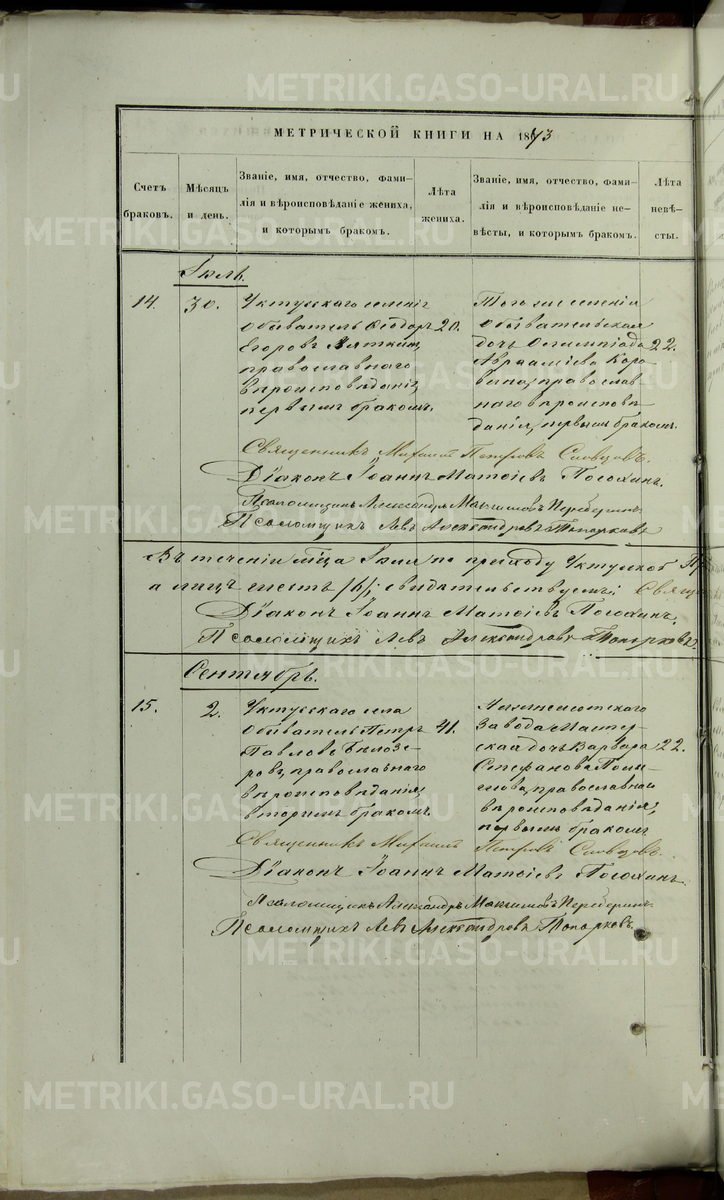 МЕТРИЧЕСКОЙ КНИГИ НА 1873
Счетъ браковъ.
Мѣсяцъ и день.
Званіе, имя, отчество, фами-
лія и вѣроисповѣданіе жениха,
и которымъ бракомъ.
Лѣта жениха.
Званіе, имя, отчество, фами-
лія и вѣроисповѣданіе не-
вѣсты, и которымъ бракомъ.
Лѣта невѣ-
сты.
Іюль.
14.
30.
Уктусскаго селенія
обыватель Ѳеодоръ
Егоровъ Вяткинъ,
православнаго
вѣроисповѣданія,
первымъ бракомъ.
20.
Того же селенія
обывательская
дочь Олимпіада
Авраамiева Коро
вина, православ
наго вѣроисповѣ
данія, первымъ бракомъ.
22.
Священникъ Михаилъ Петровъ Словцовъ.
Діаконъ Іоаннъ Матѳіевъ
Псаломщикъ Александръ Максимовъ
Псаломщикъ Левъ Александровъ Топорковъ
Въ теченіи мѣсяца Іюля по приходу Уктусской
а лицъ шесть /6/, свидѣтельствуемъ:
Діаконъ Іоаннъ Матѳіевъ
Псаломщикъ Левъ Александровъ Топорковъ.
Сентябрь.
15.
2.
Уктусскаго села
обыватель Петръ
Павловъ Бѣлозе-
ровъ, православнаго
вѣроисповѣданія,
вторымъ бракомъ.
41.
Нижнеисетскаго
завода мастер-
ская дочь Варвара
Стефанова
православнаго
вѣроисповѣданія,
первымъ бракомъ
22.
Священникъ Михаилъ Петровъ Словцовъ.
Діаконъ Іоаннъ Матѳіевъ
Псаломщикъ Александръ Максимовъ
Псаломщикъ Левъ Александровъ Топорковъ.
METRIKI.GASO-URAL.RU